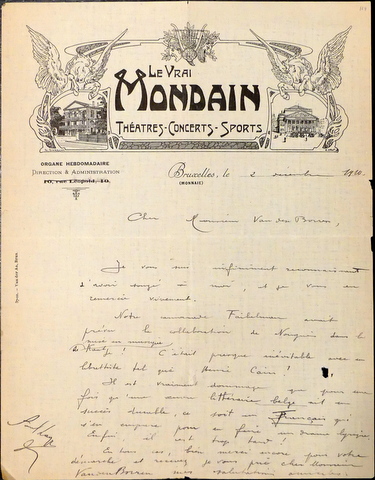 LE VRAI
MONDAIN
THÉATRES-CONCERTS-SPORTS
ORGANE HEBDOMADAIRE
DIRECTION & ADMINISTRATION
10, rue Léopold, 10.
Bruxelles, le 2 décembre 1910.
(MONNAIE)
Cher Monsieur Van den Borren,
Je vous suis infiniment reconnaissant
d'avoir songé à moi, et je vous en
remercie vivement.
Notre camarade avait
prévu la collaboration de Nouguès dans la
C'était presque inévitable avec un
librettiste tel que Henri Cain!
Il est vraiment dommage que pour une
fois qu'une œuvre littéraire belge ait un
succès durable, ce soit un Français qui
s'en empare pour en faire un drame lyrique.
Enfin, il est trop tard!
En tous cas, bien merci encore pour votre
démarche et recevez je vous prie cher Monsieur
Van den Borren mes salutations